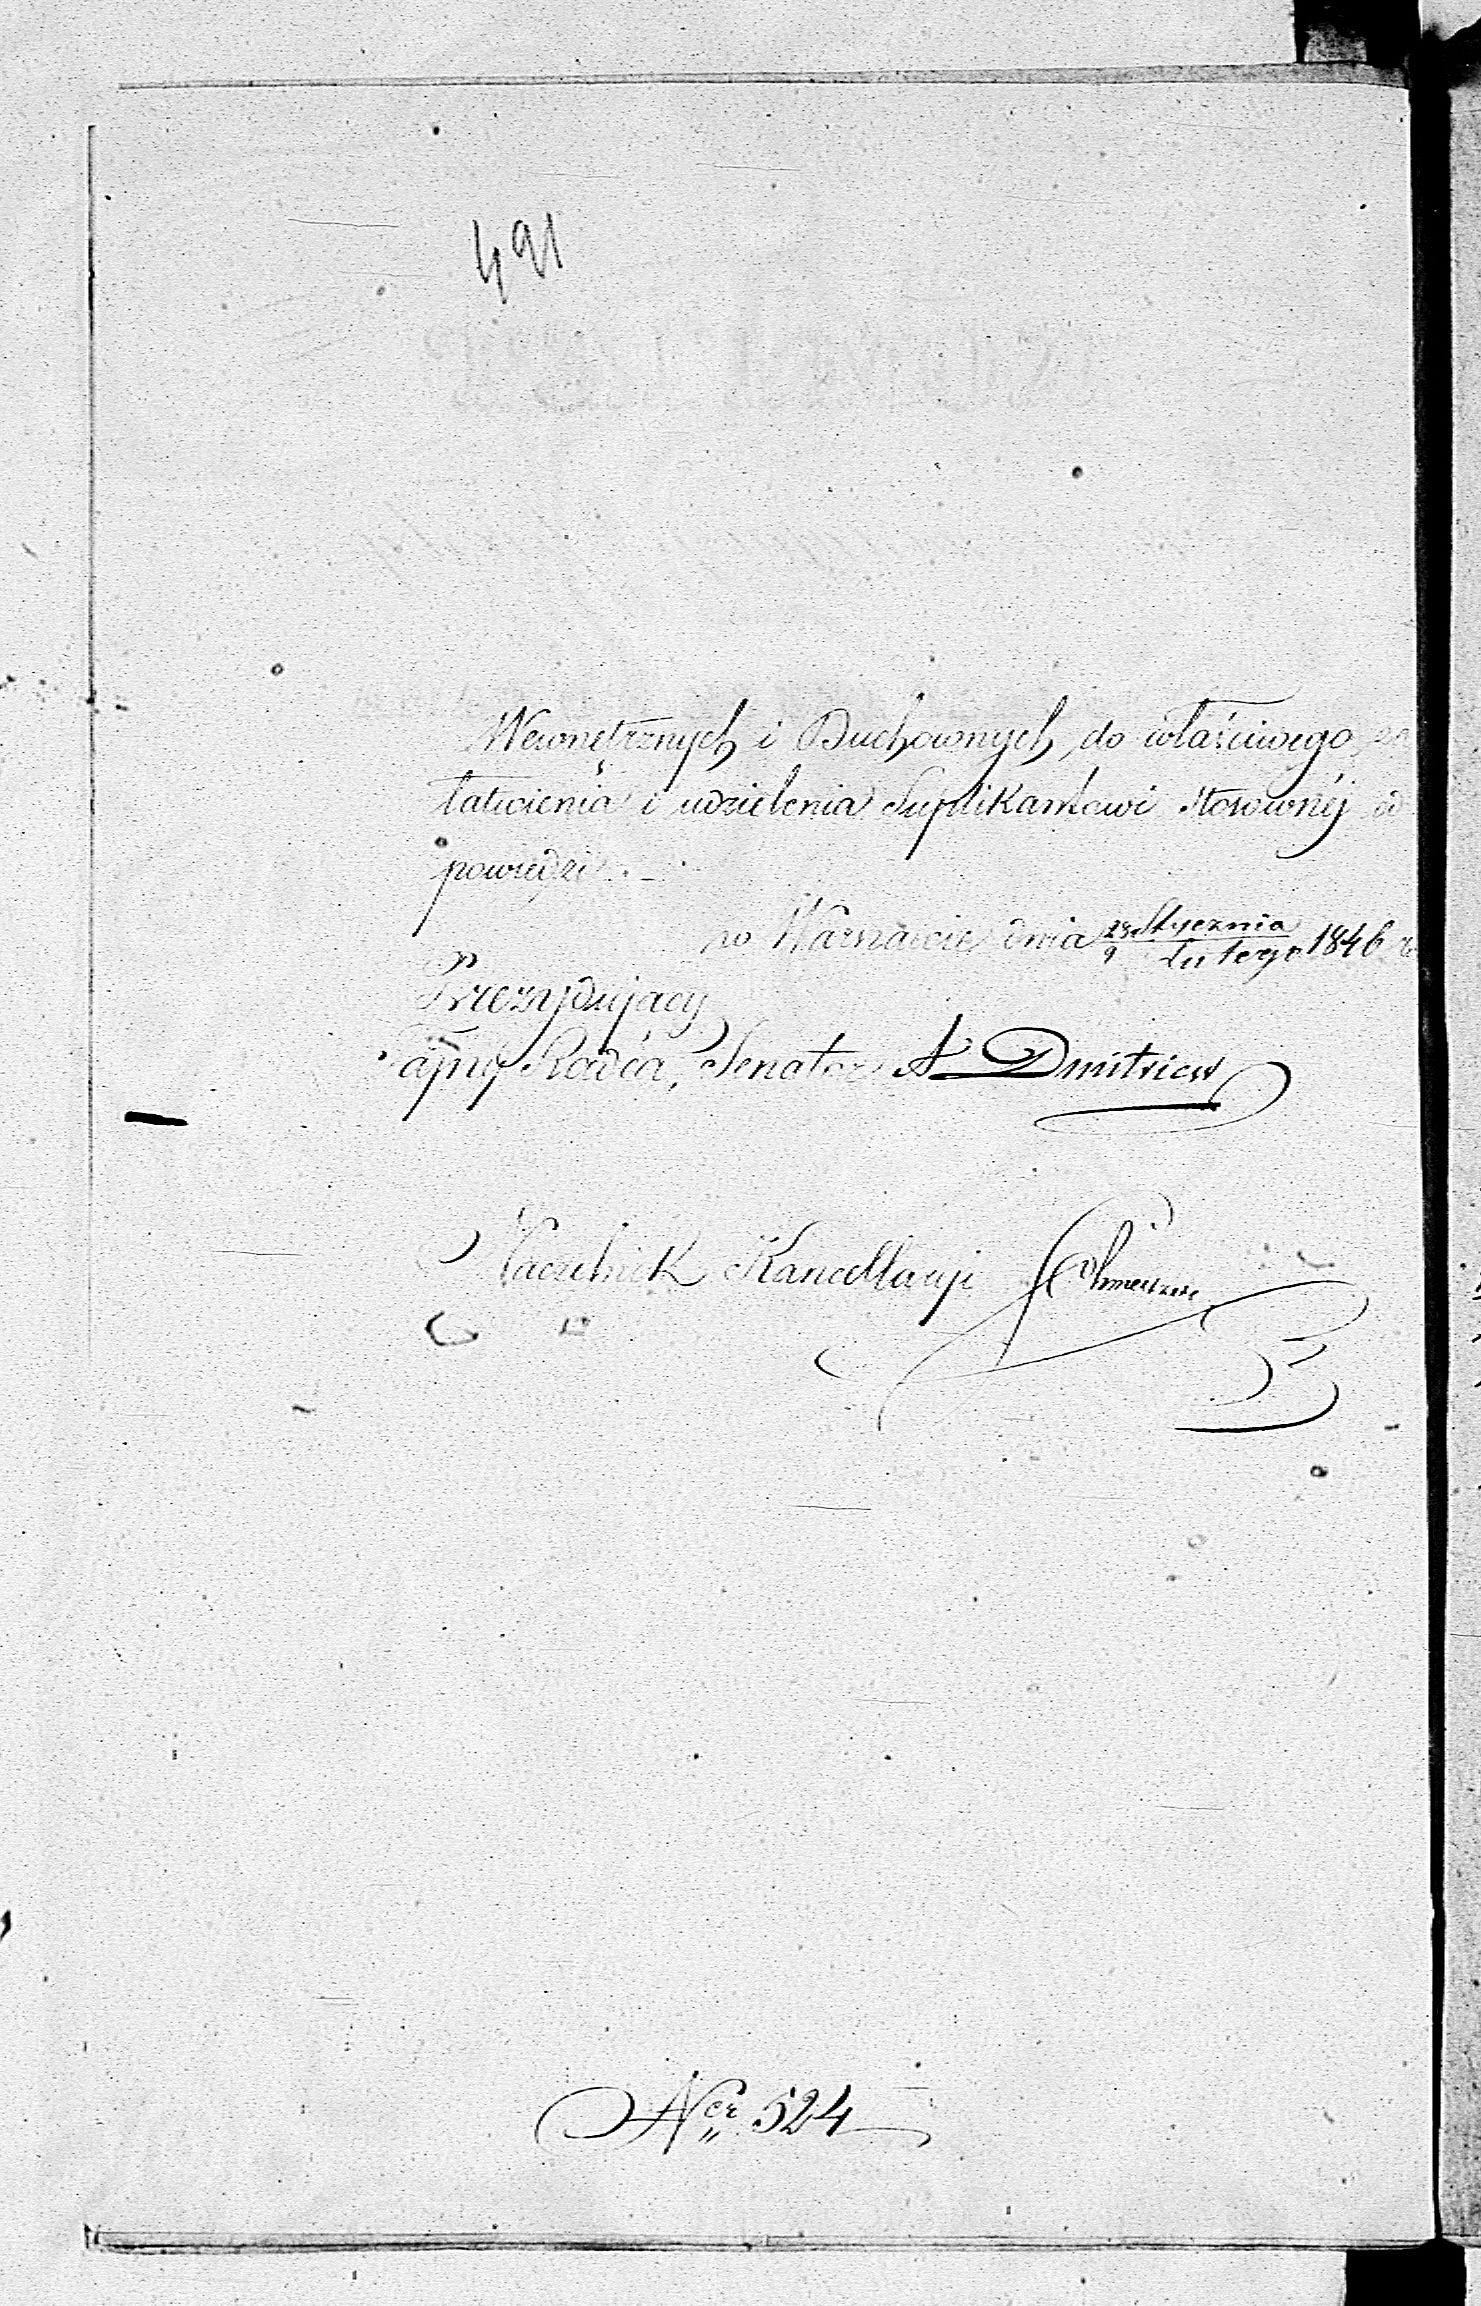 491
Wewnętrznych i Duchownych, do właściwego za
łatwienia i udzielenia Suplikantowi stosownéj od
powiedzi. —
w Warszawie dnia 28 Stycznia / 9 Lutego 1846 r
Prezydujący
Tajny Radca, Senator A Dmitriew
Naczelnik Kancellaryi
Ner 524